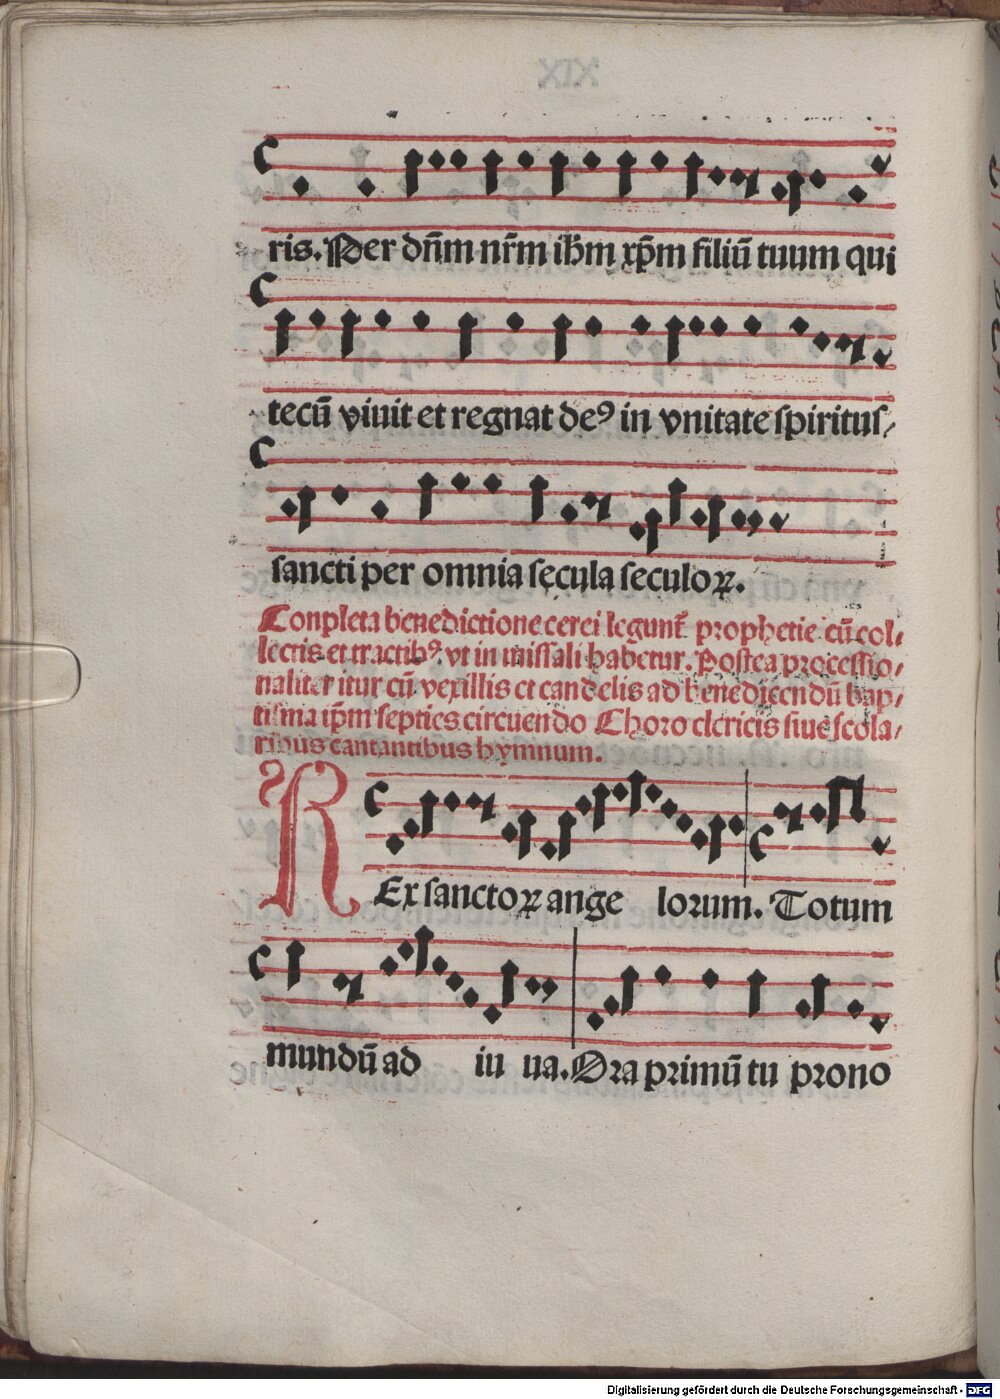 ris. Per dn̄m nr̄m ih̄m xp̄m filiū tuum qui
tecū viuit et regnat deꝰ in vnitate spiritus/
sancti per omnia secula seculoꝝ.
Conpleta benedictione cerei legunt̄ prophetie cū col/
lectis et tractibꝰ. vt in missali habetur. Postea processio/
naliter itur cū vexillis et candelis ad benedicendū bap/
tisma ip̄m septies circuendo Choro clericis siue scola/
ribus cantantibus hymnum.
REx sanctoꝝ ange lorum. Totum
mundū ad iu ua. Ora primū tu prono
Digitalisierung gefördert durch die Deutsche Forschungsgemeinschaft - DFG